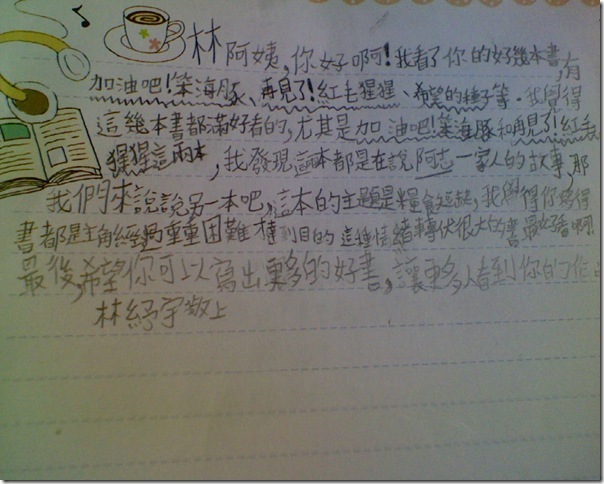 林阿姨,你好啊!我看了你的好幾本書,有
加油吧!笨海豚、再見了!紅毛猩猩、希望的種子等.我覺得
這幾本書都滿好看的,尤其是加油吧!笨海豚和再見了!紅毛
猩猩這兩本,我發現這兩本都是在說阿志一家人的故事,那
我們來說說另一本吧,這本的主題是糧食短缺,我覺得你寫得
書都是主角經過重重困難才達到目的,這種情緒轉伏很大的書最好看啊
最後,希望你可以寫出更多的好書,讓更多人看到你的作品
林紓宇敬上